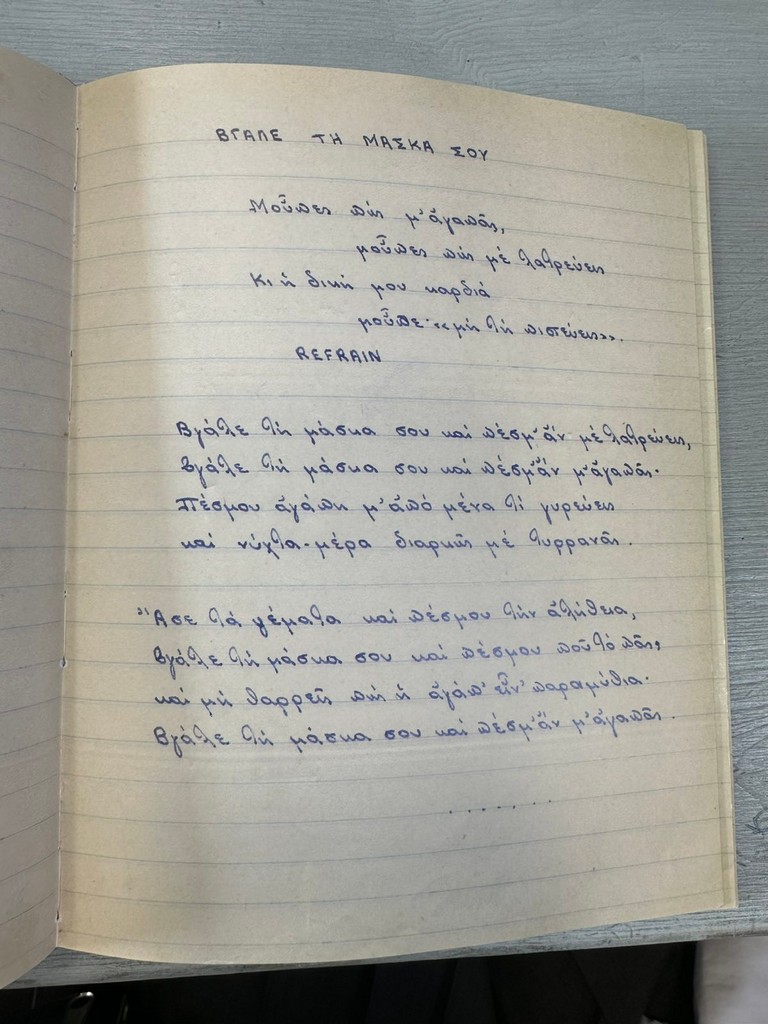 ΒΓΑΛΕ ΤΗ ΜΑΣΚΑ ΣΟΥ
Μοὖπες πὼς μ' ἀγαπᾶς,
μοὖπες πὼς μὲ λατρεύεις
Κι ἡ δική μου καρδιά
μοὖπε: «μὴ τὴ πιστεύεις».
REFRAIN
Βγάλε τὴ μάσκα σου καὶ πέσμ' ἄν μὲ λατρεύεις,
βγάλε τὴ μάσκα σου καὶ πέσμ' ἄν μ' ἀγαπᾶς.
Πέσμου ἀγάπη μ' ἀπὸ μένα τὶ γυρεύεις
καὶ νύχτα-μέρα διαρκῶς μὲ τυρρανᾶς.
Ἄσε τὰ ψέματα καὶ πέσμου τὴν ἀλήθεια,
βγάλε τὴ μάσκα σου καὶ πέσμου ποῦ τὸ πᾶς,
καὶ μὴ θαρρεῖς πὼς ἡ ἀγάπ' εἶν' παραμύθια.
Βγάλε τὴ μάσκα σου καὶ πέσμ' ἄν μ' ἀγαπᾶς.
.......